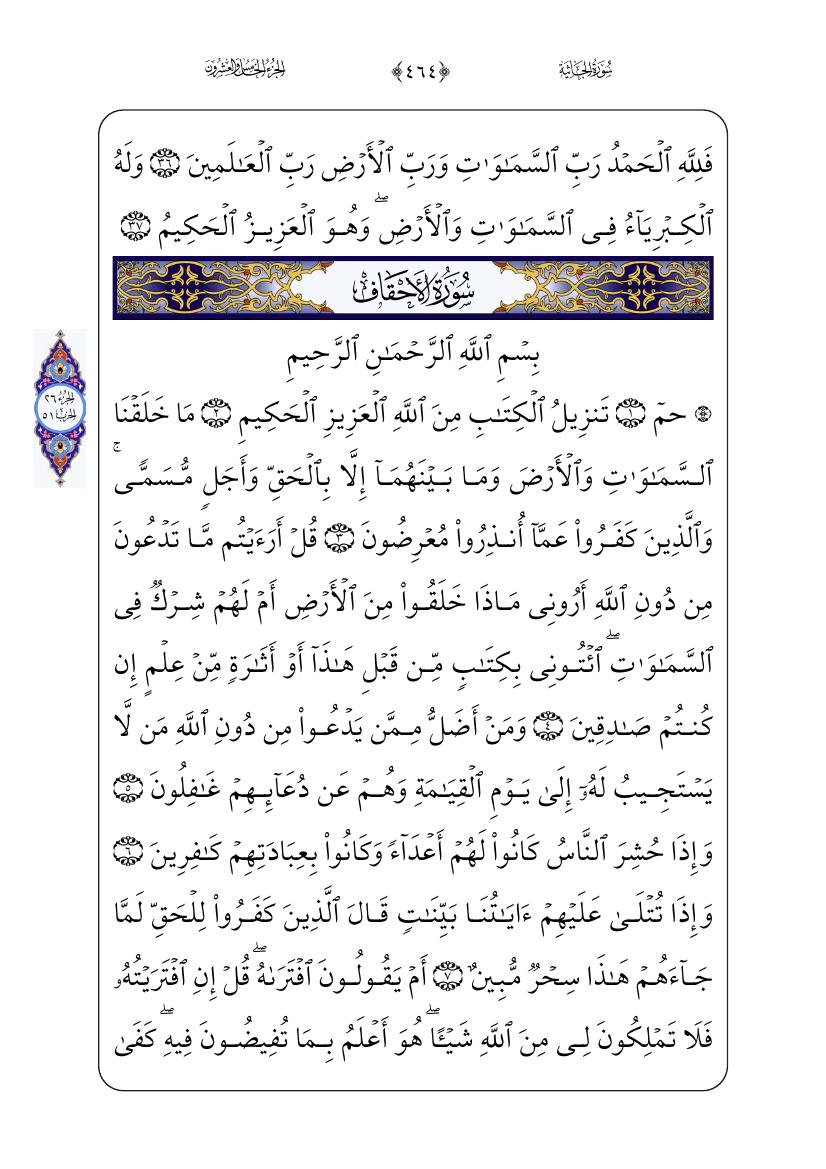 سُورَةُ الجَاثِيَة
﴿٤٦٤﴾
الجُزْءُ الخَامِسُ وَالعِشْرُونَ
فَلِلَّهِ ٱلۡحَمۡدُ رَبِّ ٱلسَّمَٰوَٰتِ وَرَبِّ ٱلۡأَرۡضِ رَبِّ ٱلۡعَٰلَمِينَ ٣٦ وَلَهُ
ٱلۡكِبۡرِيَآءُ فِي ٱلسَّمَٰوَٰتِ وَٱلۡأَرۡضِۖ وَهُوَ ٱلۡعَزِيزُ ٱلۡحَكِيمُ ٣٧
سُورَةُ الأَحْقَافِ
بِسۡمِ ٱللَّهِ ٱلرَّحۡمَٰنِ ٱلرَّحِيمِ
الجُزْءُ ٢٦
الحِزْبُ ٥١
۞ حمٓ ١ تَنزِيلُ ٱلۡكِتَٰبِ مِنَ ٱللَّهِ ٱلۡعَزِيزِ ٱلۡحَكِيمِ ٢ مَا خَلَقۡنَا
ٱلسَّمَٰوَٰتِ وَٱلۡأَرۡضَ وَمَا بَيۡنَهُمَآ إِلَّا بِٱلۡحَقِّ وَأَجَلٖ مُّسَمّٗىۚ
وَٱلَّذِينَ كَفَرُواْ عَمَّآ أُنذِرُواْ مُعۡرِضُونَ ٣ قُلۡ أَرَءَيۡتُم مَّا تَدۡعُونَ
مِن دُونِ ٱللَّهِ أَرُونِي مَاذَا خَلَقُواْ مِنَ ٱلۡأَرۡضِ أَمۡ لَهُمۡ شِرۡكٞ فِي
ٱلسَّمَٰوَٰتِۖ ٱئۡتُونِي بِكِتَٰبٖ مِّن قَبۡلِ هَٰذَآ أَوۡ أَثَٰرَةٖ مِّنۡ عِلۡمٍ إِن
كُنتُمۡ صَٰدِقِينَ ٤ وَمَنۡ أَضَلُّ مِمَّن يَدۡعُواْ مِن دُونِ ٱللَّهِ مَن لَّا
يَسۡتَجِيبُ لَهُۥٓ إِلَىٰ يَوۡمِ ٱلۡقِيَٰمَةِ وَهُمۡ عَن دُعَآئِهِمۡ غَٰفِلُونَ ٥
وَإِذَا حُشِرَ ٱلنَّاسُ كَانُواْ لَهُمۡ أَعۡدَآءٗ وَكَانُواْ بِعِبَادَتِهِمۡ كَٰفِرِينَ ٦
وَإِذَا تُتۡلَىٰ عَلَيۡهِمۡ ءَايَٰتُنَا بَيِّنَٰتٖ قَالَ ٱلَّذِينَ كَفَرُواْ لِلۡحَقِّ لَمَّا
جَآءَهُمۡ هَٰذَا سِحۡرٞ مُّبِينٌ ٧ أَمۡ يَقُولُونَ ٱفۡتَرَىٰهُۖ قُلۡ إِنِ ٱفۡتَرَيۡتُهُۥ
فَلَا تَمۡلِكُونَ لِي مِنَ ٱللَّهِ شَيۡـًٔاۖ هُوَ أَعۡلَمُ بِمَا تُفِيضُونَ فِيهِۖ كَفَىٰ